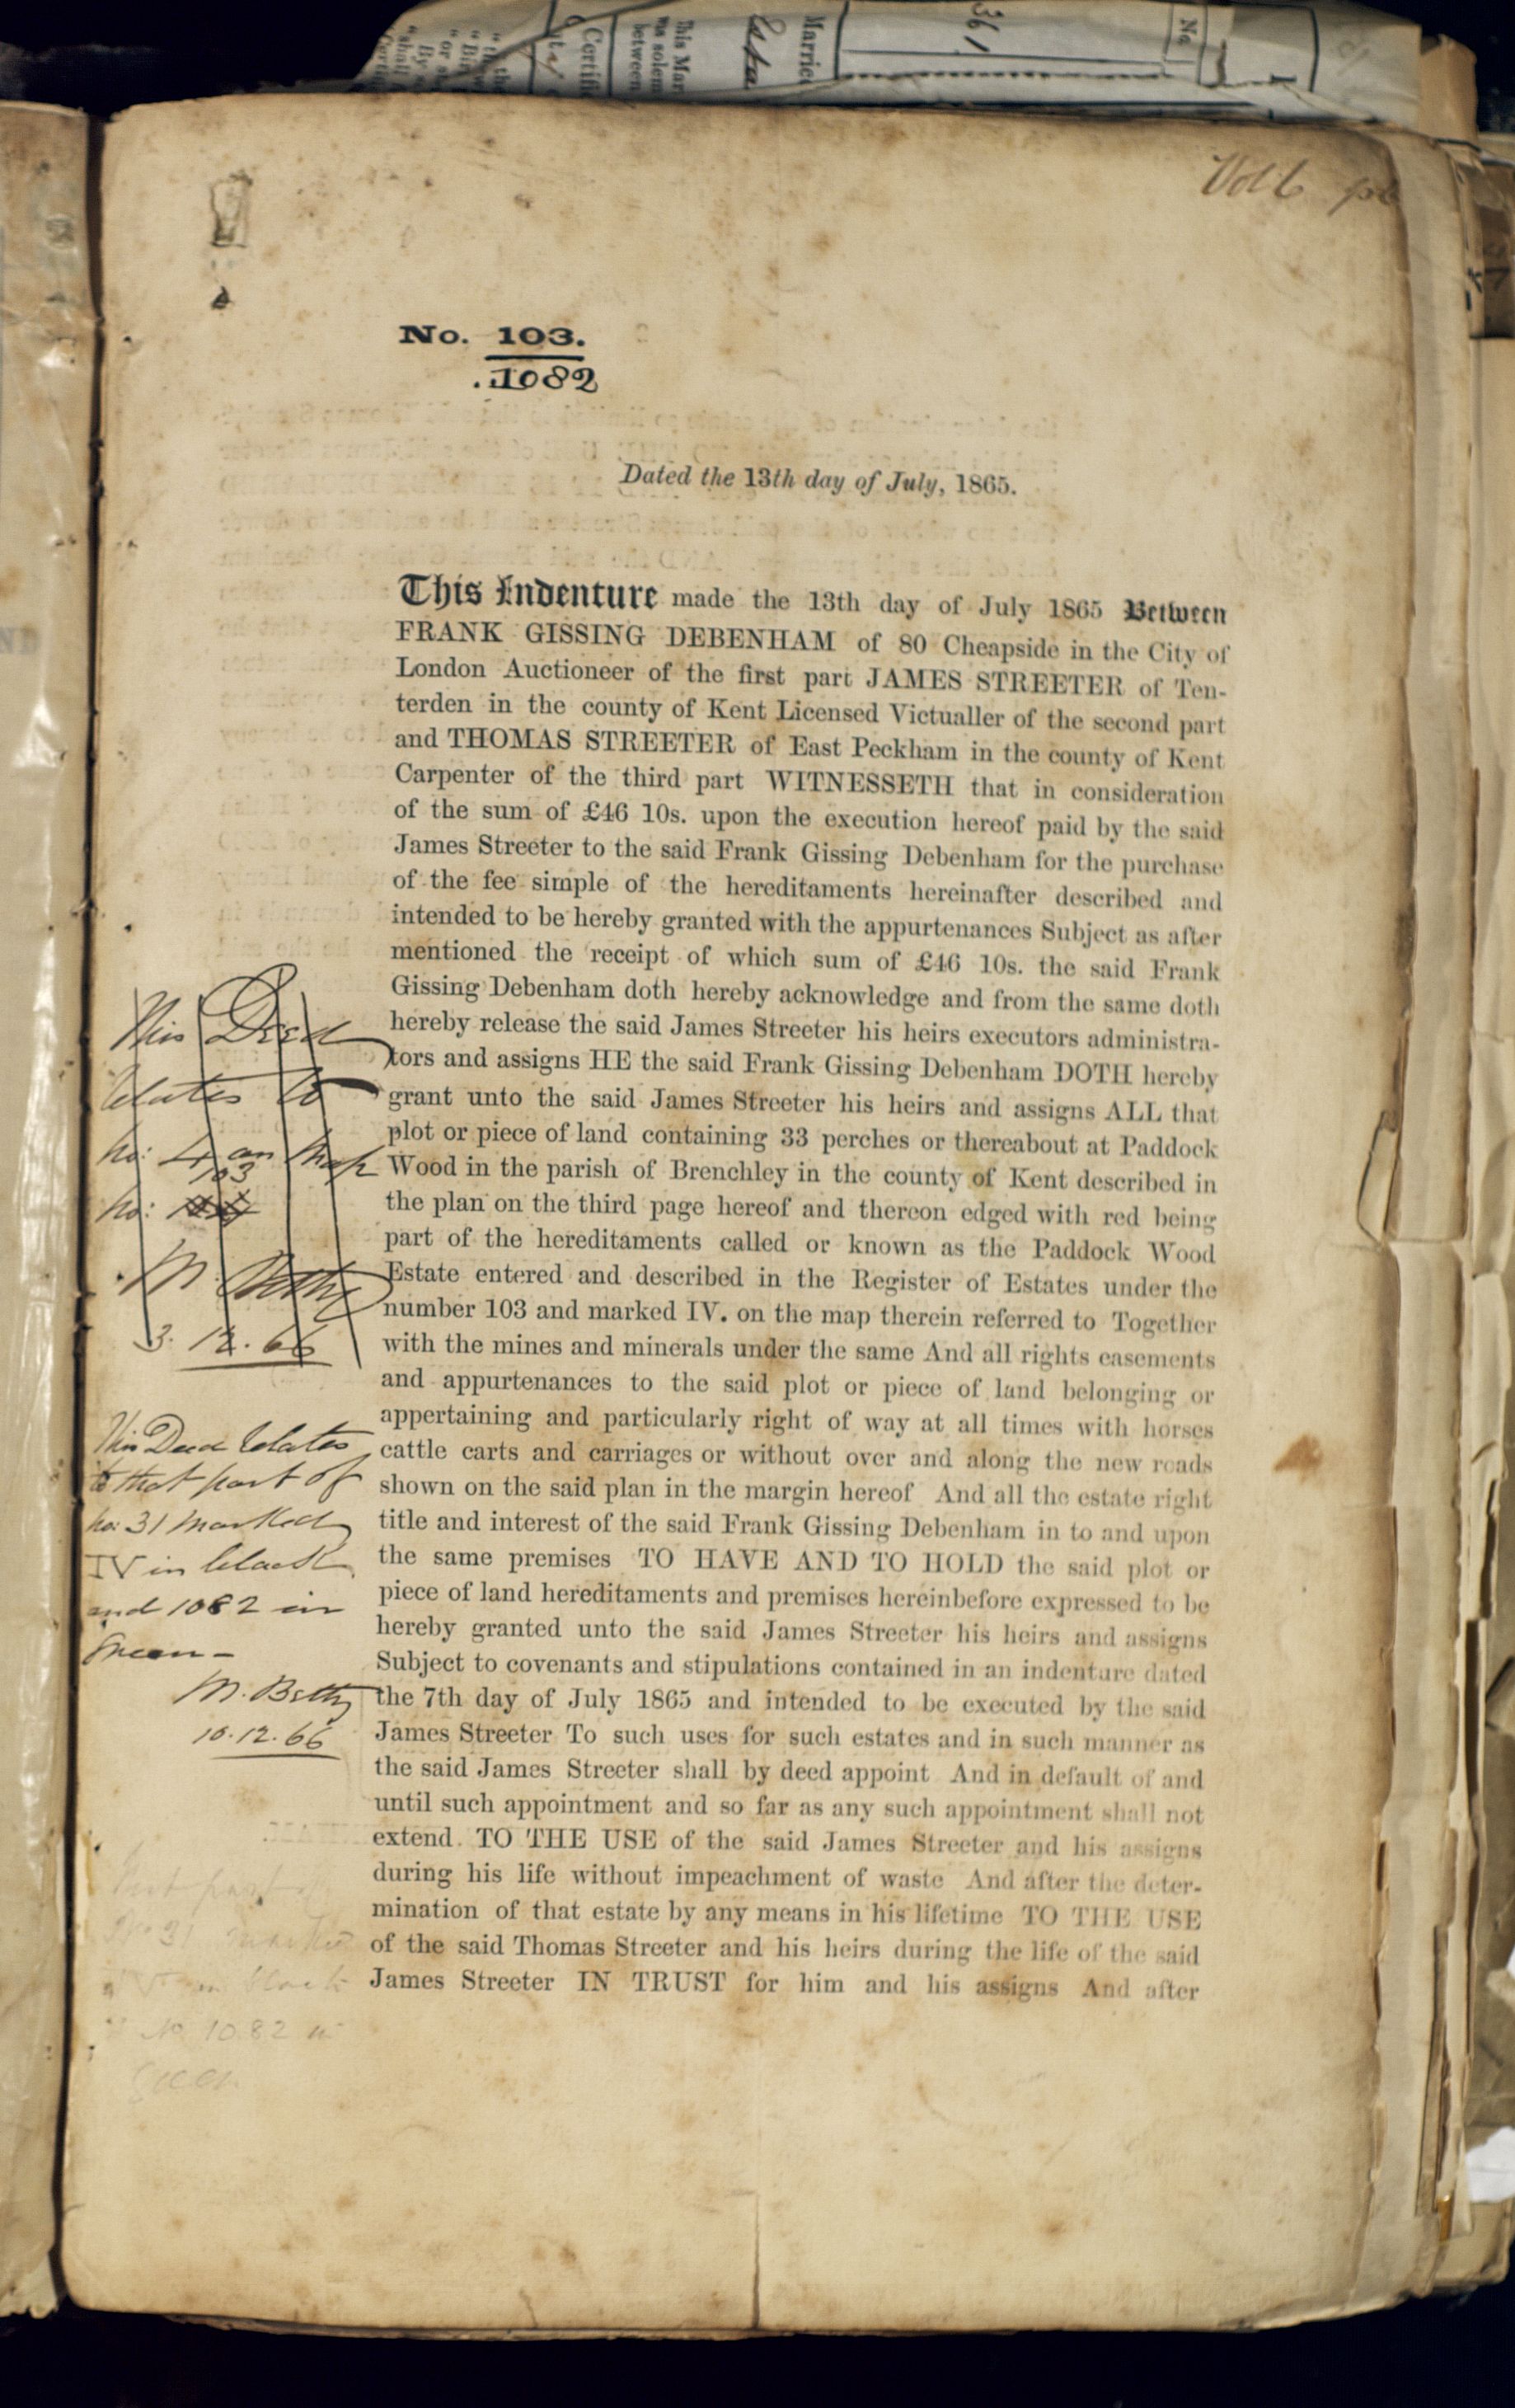 No.
361
Married
This Mar
was solem
between
Certific
Vol 6 p6
No. 103.
1082
Dated the 13th day of July, 1865.
This Indenture made the 13th day of July 1865 Between
FRANK GISSING DEBENHAM of 80 Cheapside in the City of
London Auctioneer of the first part JAMES STREETER of Ten-
terden in the county of Kent Licensed Victualler of the second part
and THOMAS STREETER of East Peckham in the county of Kent
Carpenter of the third part WITNESSETH that in consideration
of the sum of £46 10s. upon the execution hereof paid by the said
James Streeter to the said Frank Gissing Debenham for the purchase
of the fee simple of the hereditaments hereinafter described and
intended to be hereby granted with the appurtenances Subject as after
mentioned the receipt of which sum of £46 10s. the said Frank
Gissing Debenham doth hereby acknowledge and from the same doth
hereby release the said James Streeter his heirs executors administra-
tors and assigns HE the said Frank Gissing Debenham DOTH hereby
grant unto the said James Streeter his heirs and assigns ALL that
plot or piece of land containing 33 perches or thereabout at Paddock
Wood in the parish of Brenchley in the county of Kent described in
the plan on the third page hereof and thereon edged with red being
part of the hereditaments called or known as the Paddock Wood
Estate entered and described in the Register of Estates under the
number 103 and marked IV. on the map therein referred to Together
with the mines and minerals under the same And all rights easements
and appurtenances to the said plot or piece of land belonging or
appertaining and particularly right of way at all times with horses
cattle carts and carriages or without over and along the new roads
shown on the said plan in the margin hereof And all the estate right
title and interest of the said Frank Gissing Debenham in to and upon
the same premises TO HAVE AND TO HOLD the said plot or
piece of land hereditaments and premises hereinbefore expressed to be
hereby granted unto the said James Streeter his heirs and assigns
Subject to covenants and stipulations contained in an indenture dated
the 7th day of July 1865 and intended to be executed by the said
James Streeter To such uses for such estates and in such manner as
the said James Streeter shall by deed appoint And in default of and
until such appointment and so far as any such appointment shall not
extend TO THE USE of the said James Streeter and his assigns
during his life without impeachment of waste And after the deter-
mination of that estate by any means in his lifetime TO THE USE
of the said Thomas Streeter and his heirs during the life of the said
James Streeter IN TRUST for him and his assigns And after
This Deed
relates to
No: 4 on Map
103
No:
M. Betty
3. 12. 66
This Deed relates
to that part of
No: 31 marked
IV in black
and 1082 in
Green -
M. Betty
10. 12. 66
part
No 31 marked
IV in black
No 1082 in
Green